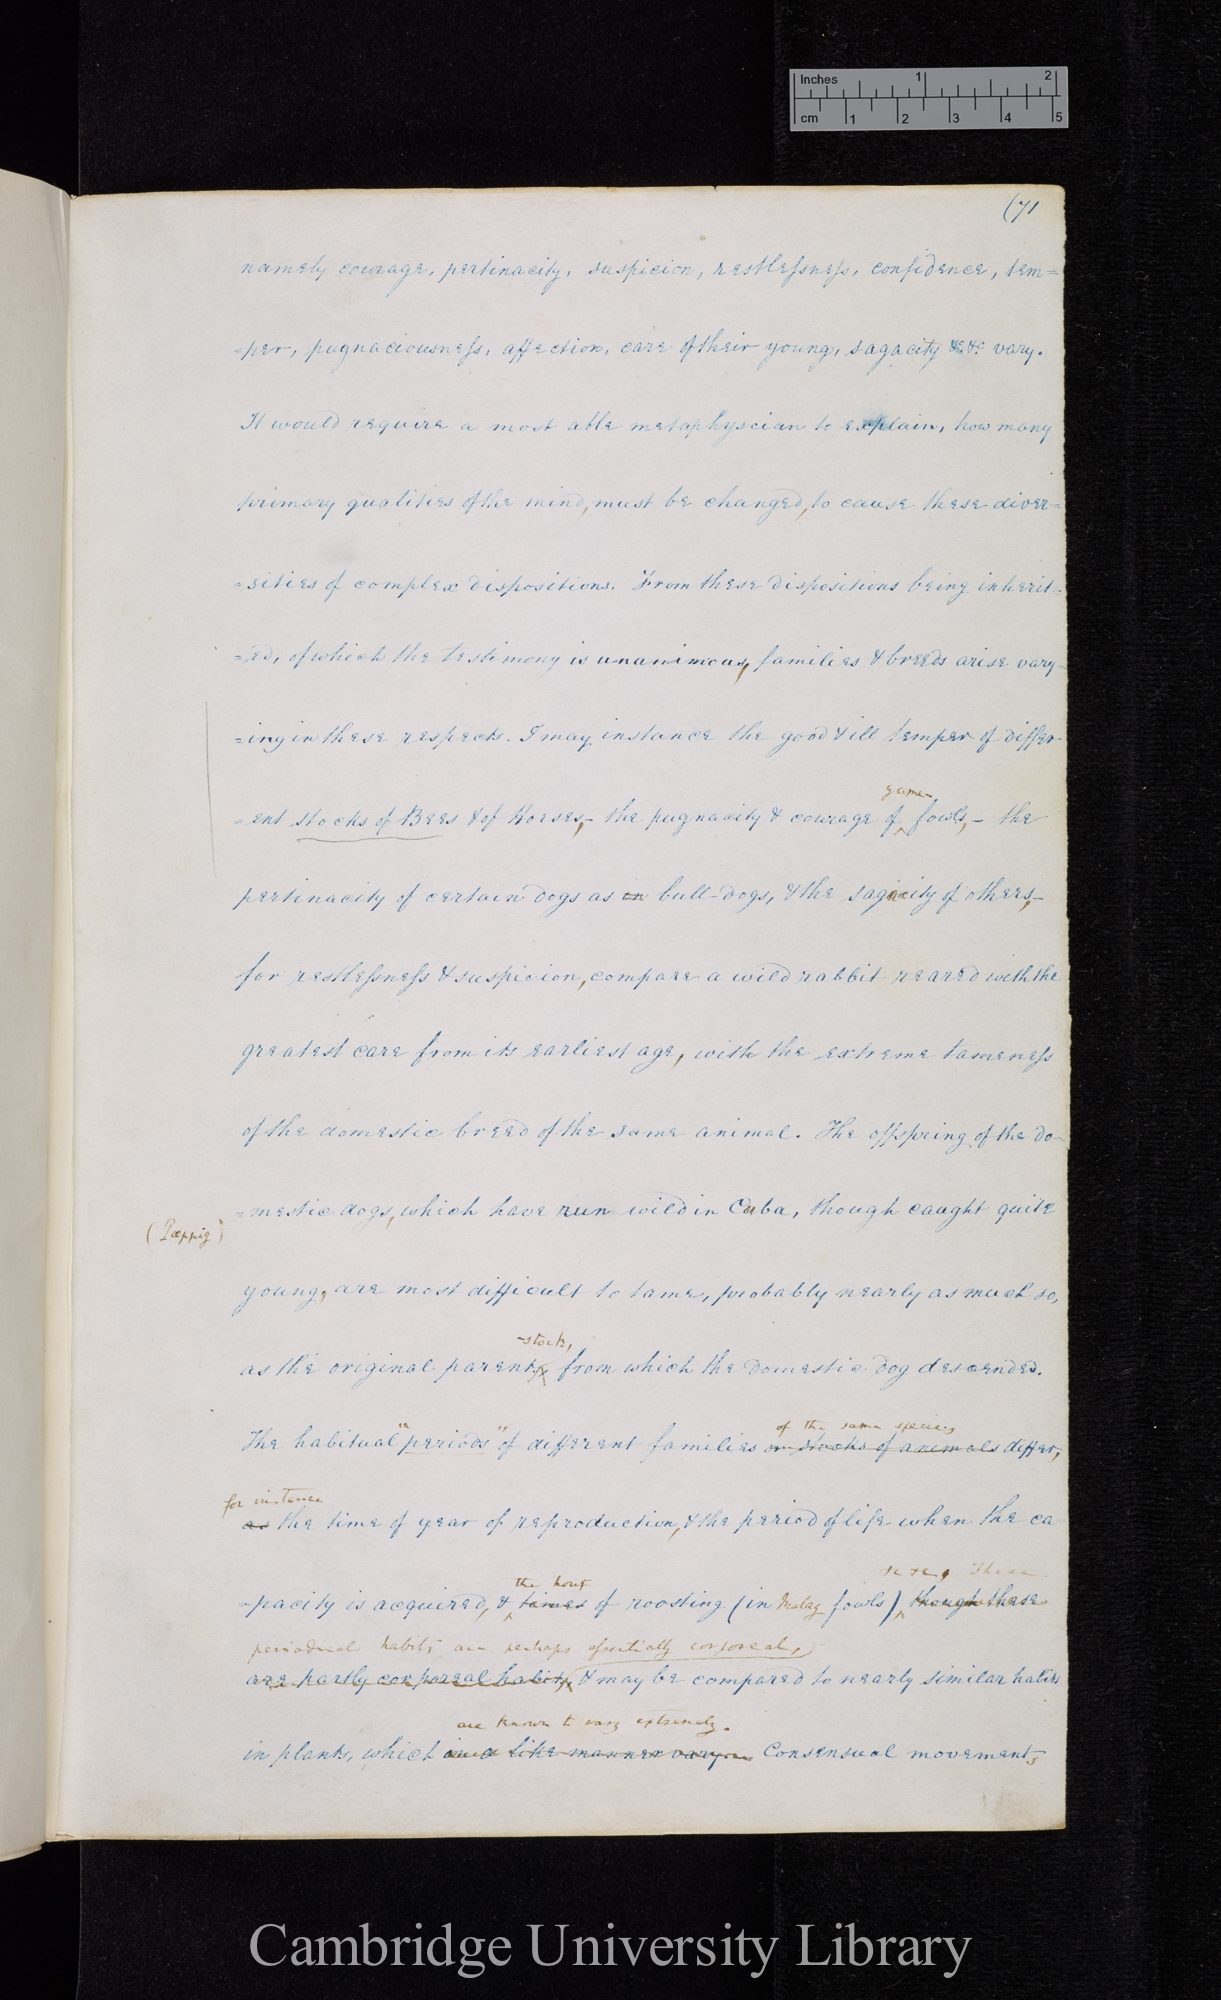 Inches 1 2
cm 1 2 3 4 5
(71
namely courage, pertinacity, suspicion, restlessness, confidence, tem=
=per, pugnaciousness, affection, care of their young, sagacity &c. &c. vary.
It would require a most able metaphyscian to explain, how many
primary qualities of the mind, must be changed, to cause these diver=
=sities of complex dispositions. From these dispositions being inherit=
=ed, of which the testimony is unanimous, families & breeds arise vary-
=ing in these respects. I may instance the good & ill temper of differ-
game-
=ent stocks of Bees & of Horses,– the pugnacity & courage of fowls,– the
pertinacity of certain dogs as in bull-dogs, & the sagacity of others,–
for restlessness & suspicion, compare a wild rabbit reared with the
greatest care from its earliest age, with the extreme tameness
of the domestic breed of the same animal. The offspring of the do-
=mestic dogs, which have run wild in Cuba, though caught quite
(Pœppig)
young, are most difficult to tame, probably nearly as much so,
-stock,
as the original parents from which the domestic dog descended.
of the same species
The habitual "periods" of different families or stocks of animals differ,
for instance
as the time of year of reproduction, & the period of life when the ca
the hour &c &c, These
=pacity is acquired, & times of roosting (in Malay fowls) though these
periodical habits are perhaps essentially corporeal,
are partly corporeal habits, & may be compared to nearly similar habits
are known to vary extremely.
in plants, which in a like manner vary. Consensual movements
Cambridge University Library